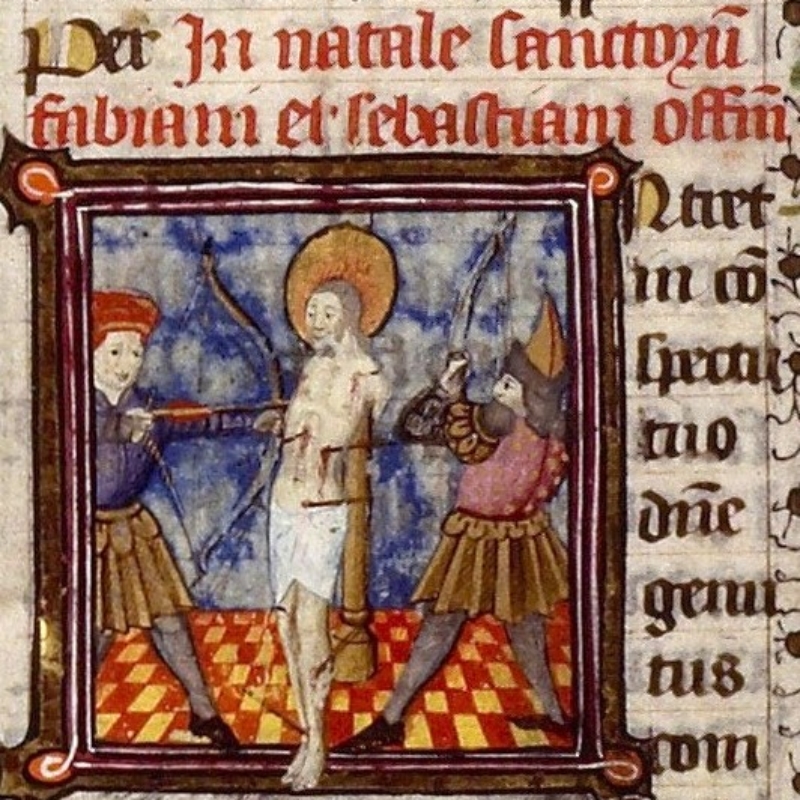 Per In natale sanctorū
fabiani et sebastiani offm̄
Ntret
in cō
spectu
tuo
dn̄e
gemi
tus
com